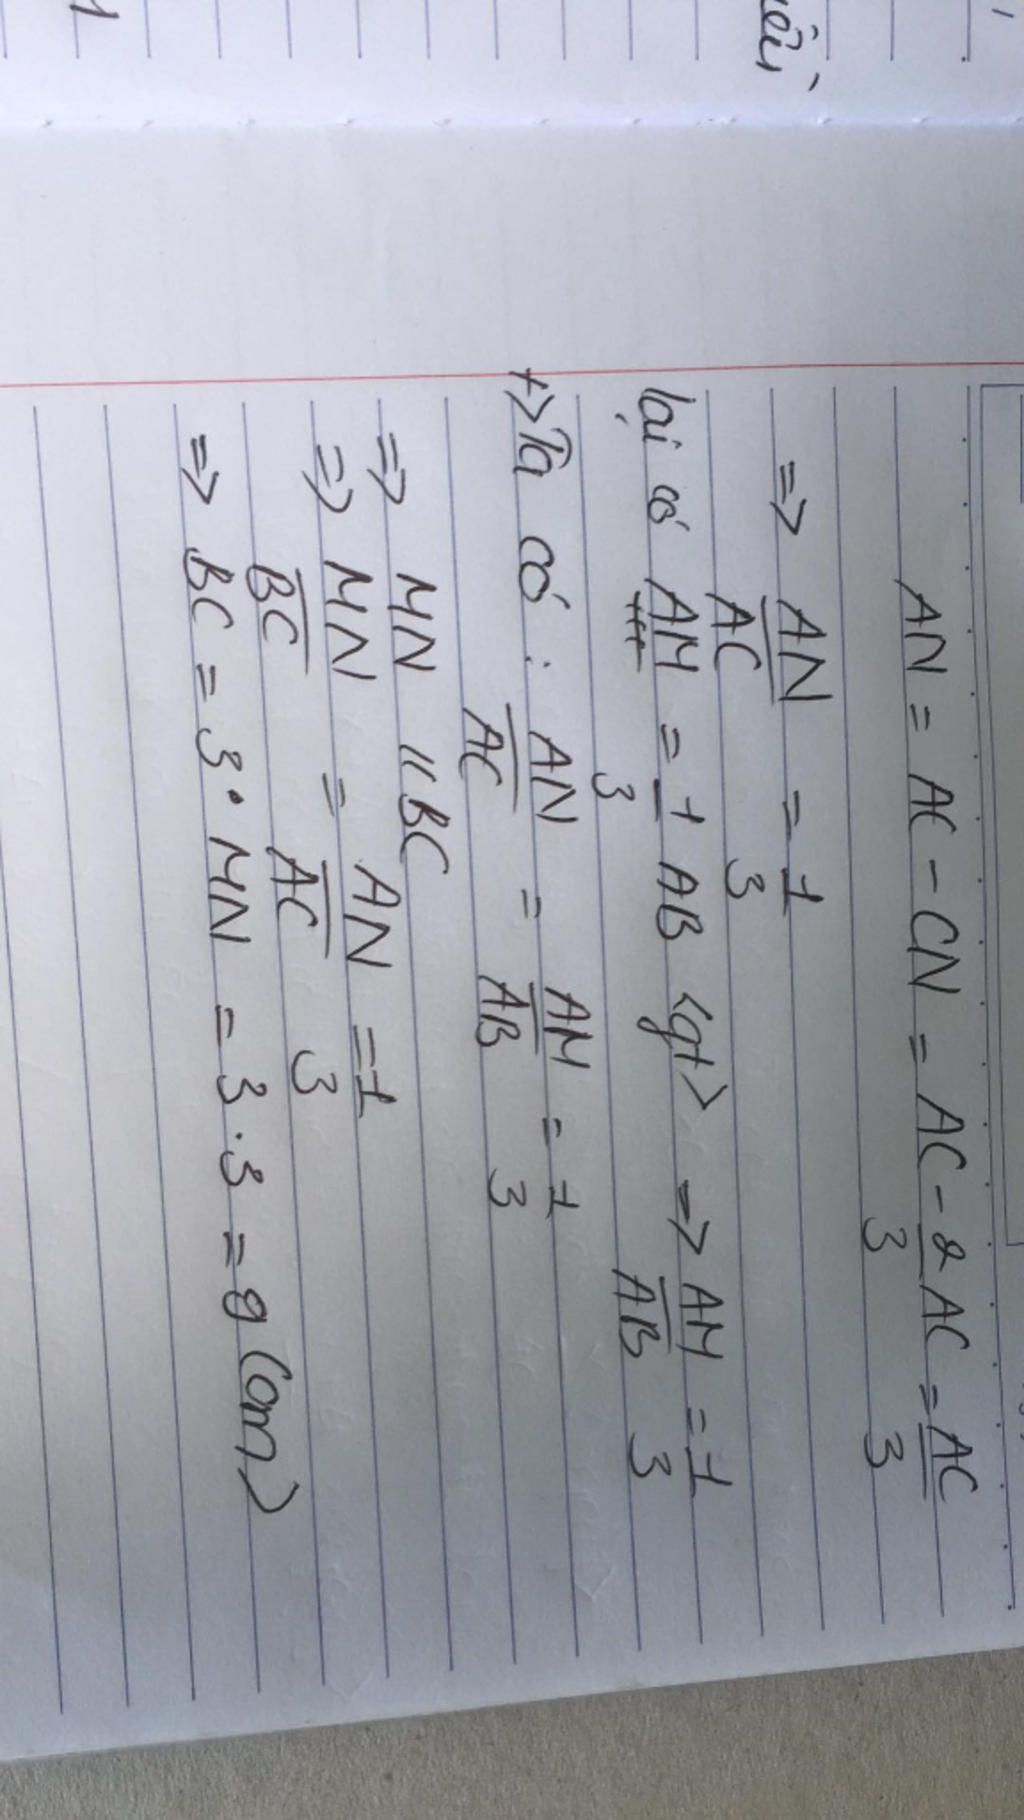 AN = AC - CN = AC - 2/3 AC = AC/3
=> AN/AC = 1/3
lại có AM = 1/3 AB <gt> => AM/AB = 1/3
+> Ta có : AN/AC = AM/AB = 1/3
=> MN // BC
=> MN/BC = AN/AC = 1/3
=> BC = 3. MN = 3.3 = 9 (cm)